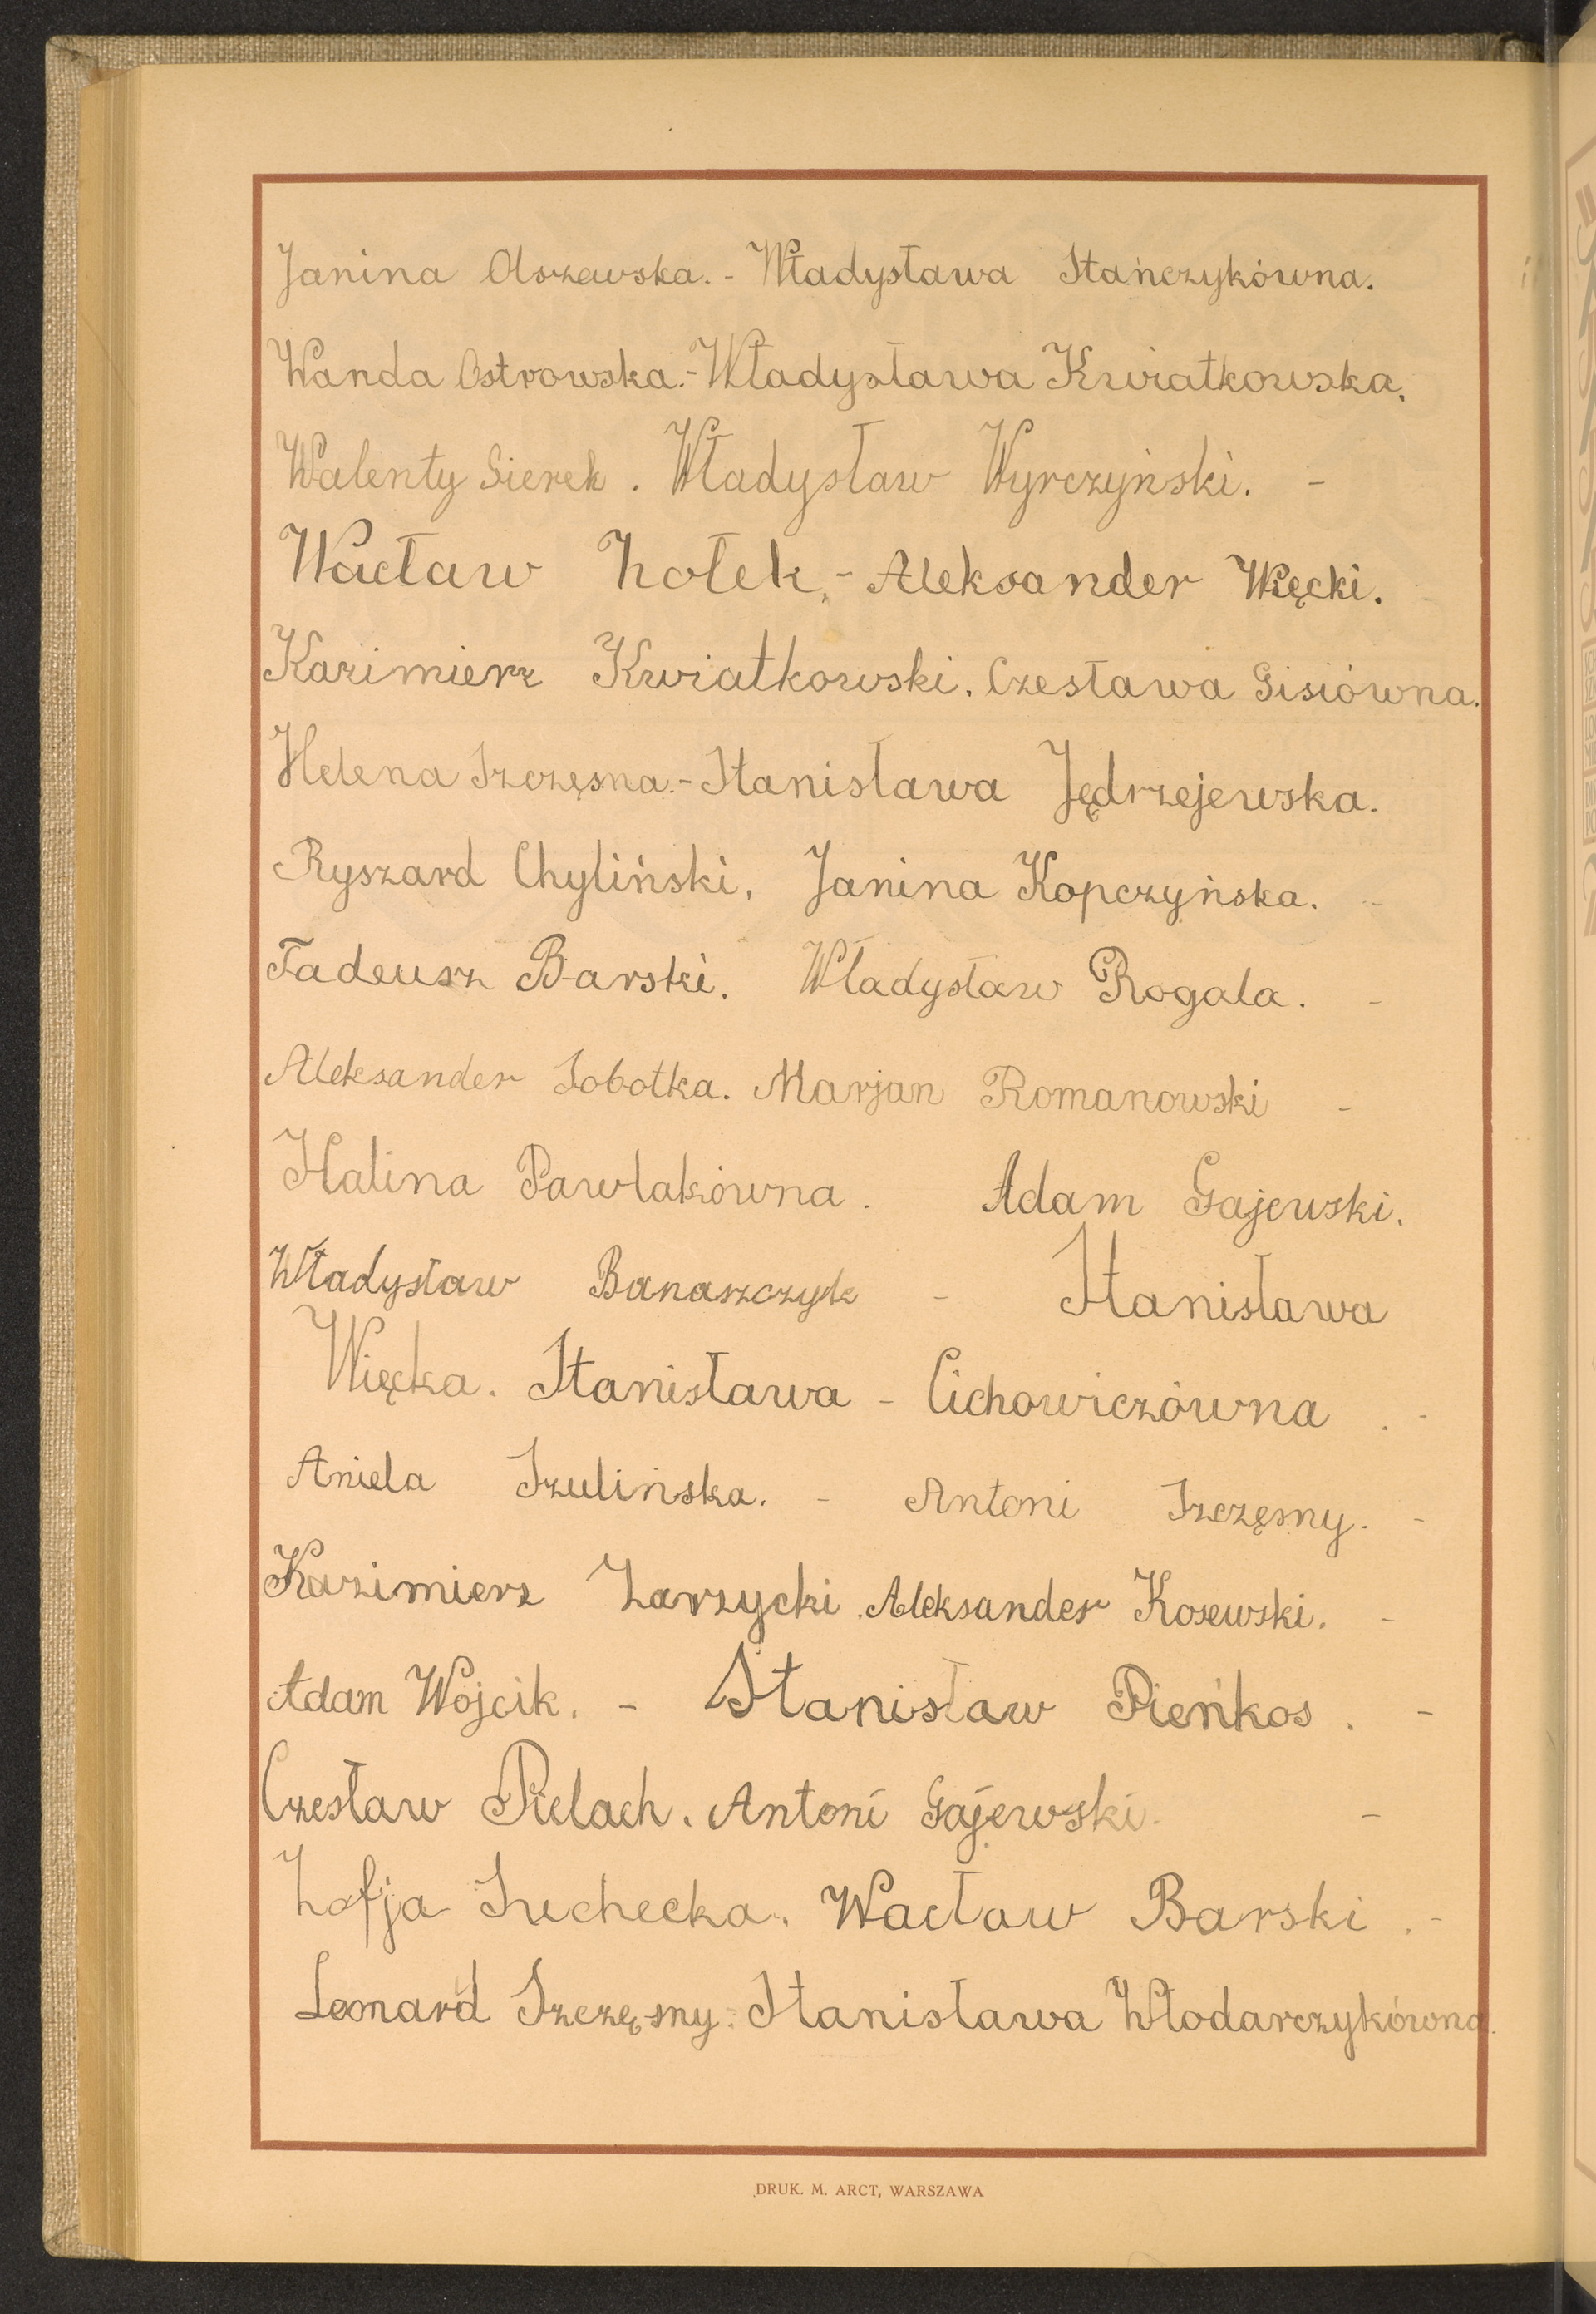 Janina Olszewska. - Władysława Stańczykówna.
Wanda Ostrowska. - Władysława Kwiatkowska.
Walenty Sierek. Władysław Wyrczyński. -
Wacław Żołek. - Aleksander Więcki.
Kazimierz Kwiatkowski. Czesława Gisiówna.
Helena Szczęsna. - Stanisława Jędrzejewska.
Ryszard Chyliński, Janina Kopczyńska. -
Tadeusz Barski. Władysław Rogala. -
Aleksander Sobotka. Marjan Romanowski -
Halina Pawlakówna. Adam Gajewski.
Władysław Banaszczyk - Stanisława
Więcka. Stanisława - Cichowiczówna . -
Aniela Szulińska. - Antoni Szczęsny. -
Kazimierz Zarzycki. Aleksander Kosewski. -
Adam Wójcik. - Stanisław Pieńkos. -
Czesław Pielach. Antoni Gajewski. -
Zofja Suchecka. Wacław Barski. -
Leonard Szczęsny. Stanisława Włodarczykówna.
DRUK. M. ARCT, WARSZAWA